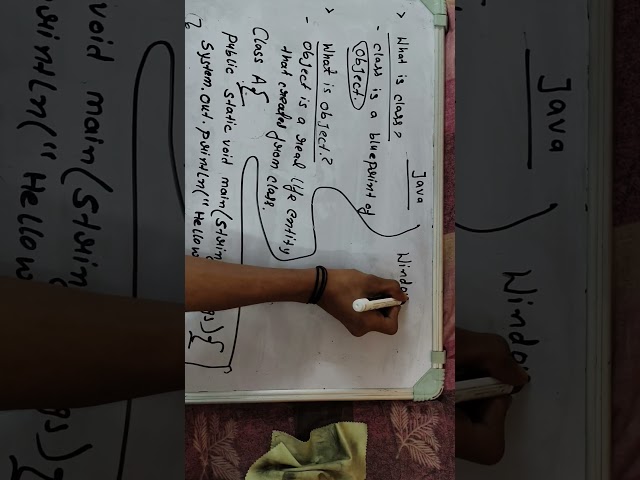 Java
> What is class?
- class is a blueprint of
object.
> What is object?
- object is a real life entity
that created from class.
Class A {
public static void main(String
gs) {
System.out.println(" Hellow
Windo